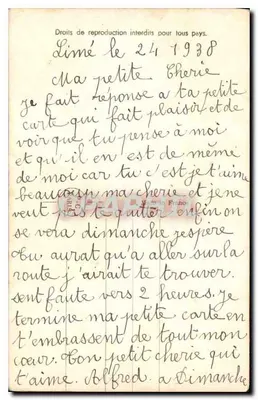 Droits de reproduction interdits pour tous pays.
Limé le 24 1938
Ma petite Cherie
Je fait réponse a ta petite
carte qui fait plaisir et de
voir que tu pense à moi
et qu'il en est de même
de moi car tu c'est je t'aime
beaucoup ma cherie et je ne
veut pas quitter enfin on
se vera dimanche jespere
Tu aurat qu'a aller sur la
route j'airait te trouver.
sent faute vers 2 heures. Je
termine ma petite carte en
t'embrassent de tout mon
cœur. Ton petit cherie qui
t'aime. Alfred. a Dimanche